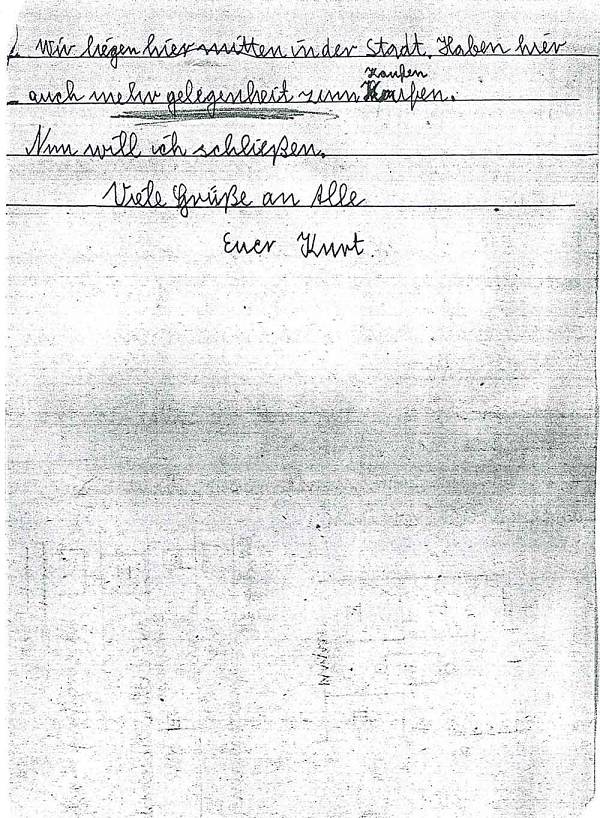 Wir liegen hier mitten in der Stadt. Haben hier
Kaufen
auch mehr gelegenheit zum Kaufen.
Nun will ich schließen.
Viele Grüße an Alle
Euer Kurt.